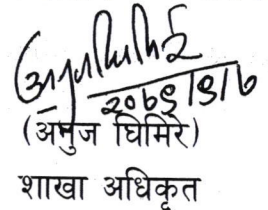 २०७९।९।७
(अनुज घिमिरे)
शाखा अधिकृत